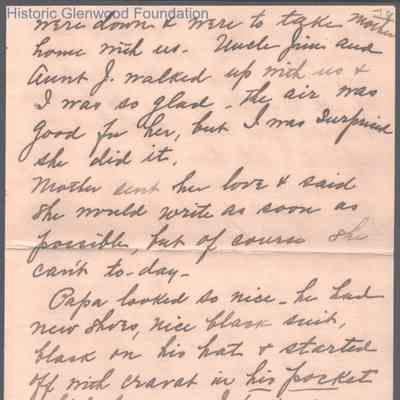 Historic Glenwood Foundation
were down & were to take Mother
home with us. Uncle Jim and
Aunt J. walked up with us &
I was so glad - the air was
good for her, but I was surprised
she did it.
Mother sent her love & said
she would write as soon as
possible, but of course she
can't to-day -
Papa looked so nice - he had
new shoes, nice black suit,
black on his hat & started
off with cravat in his pocket